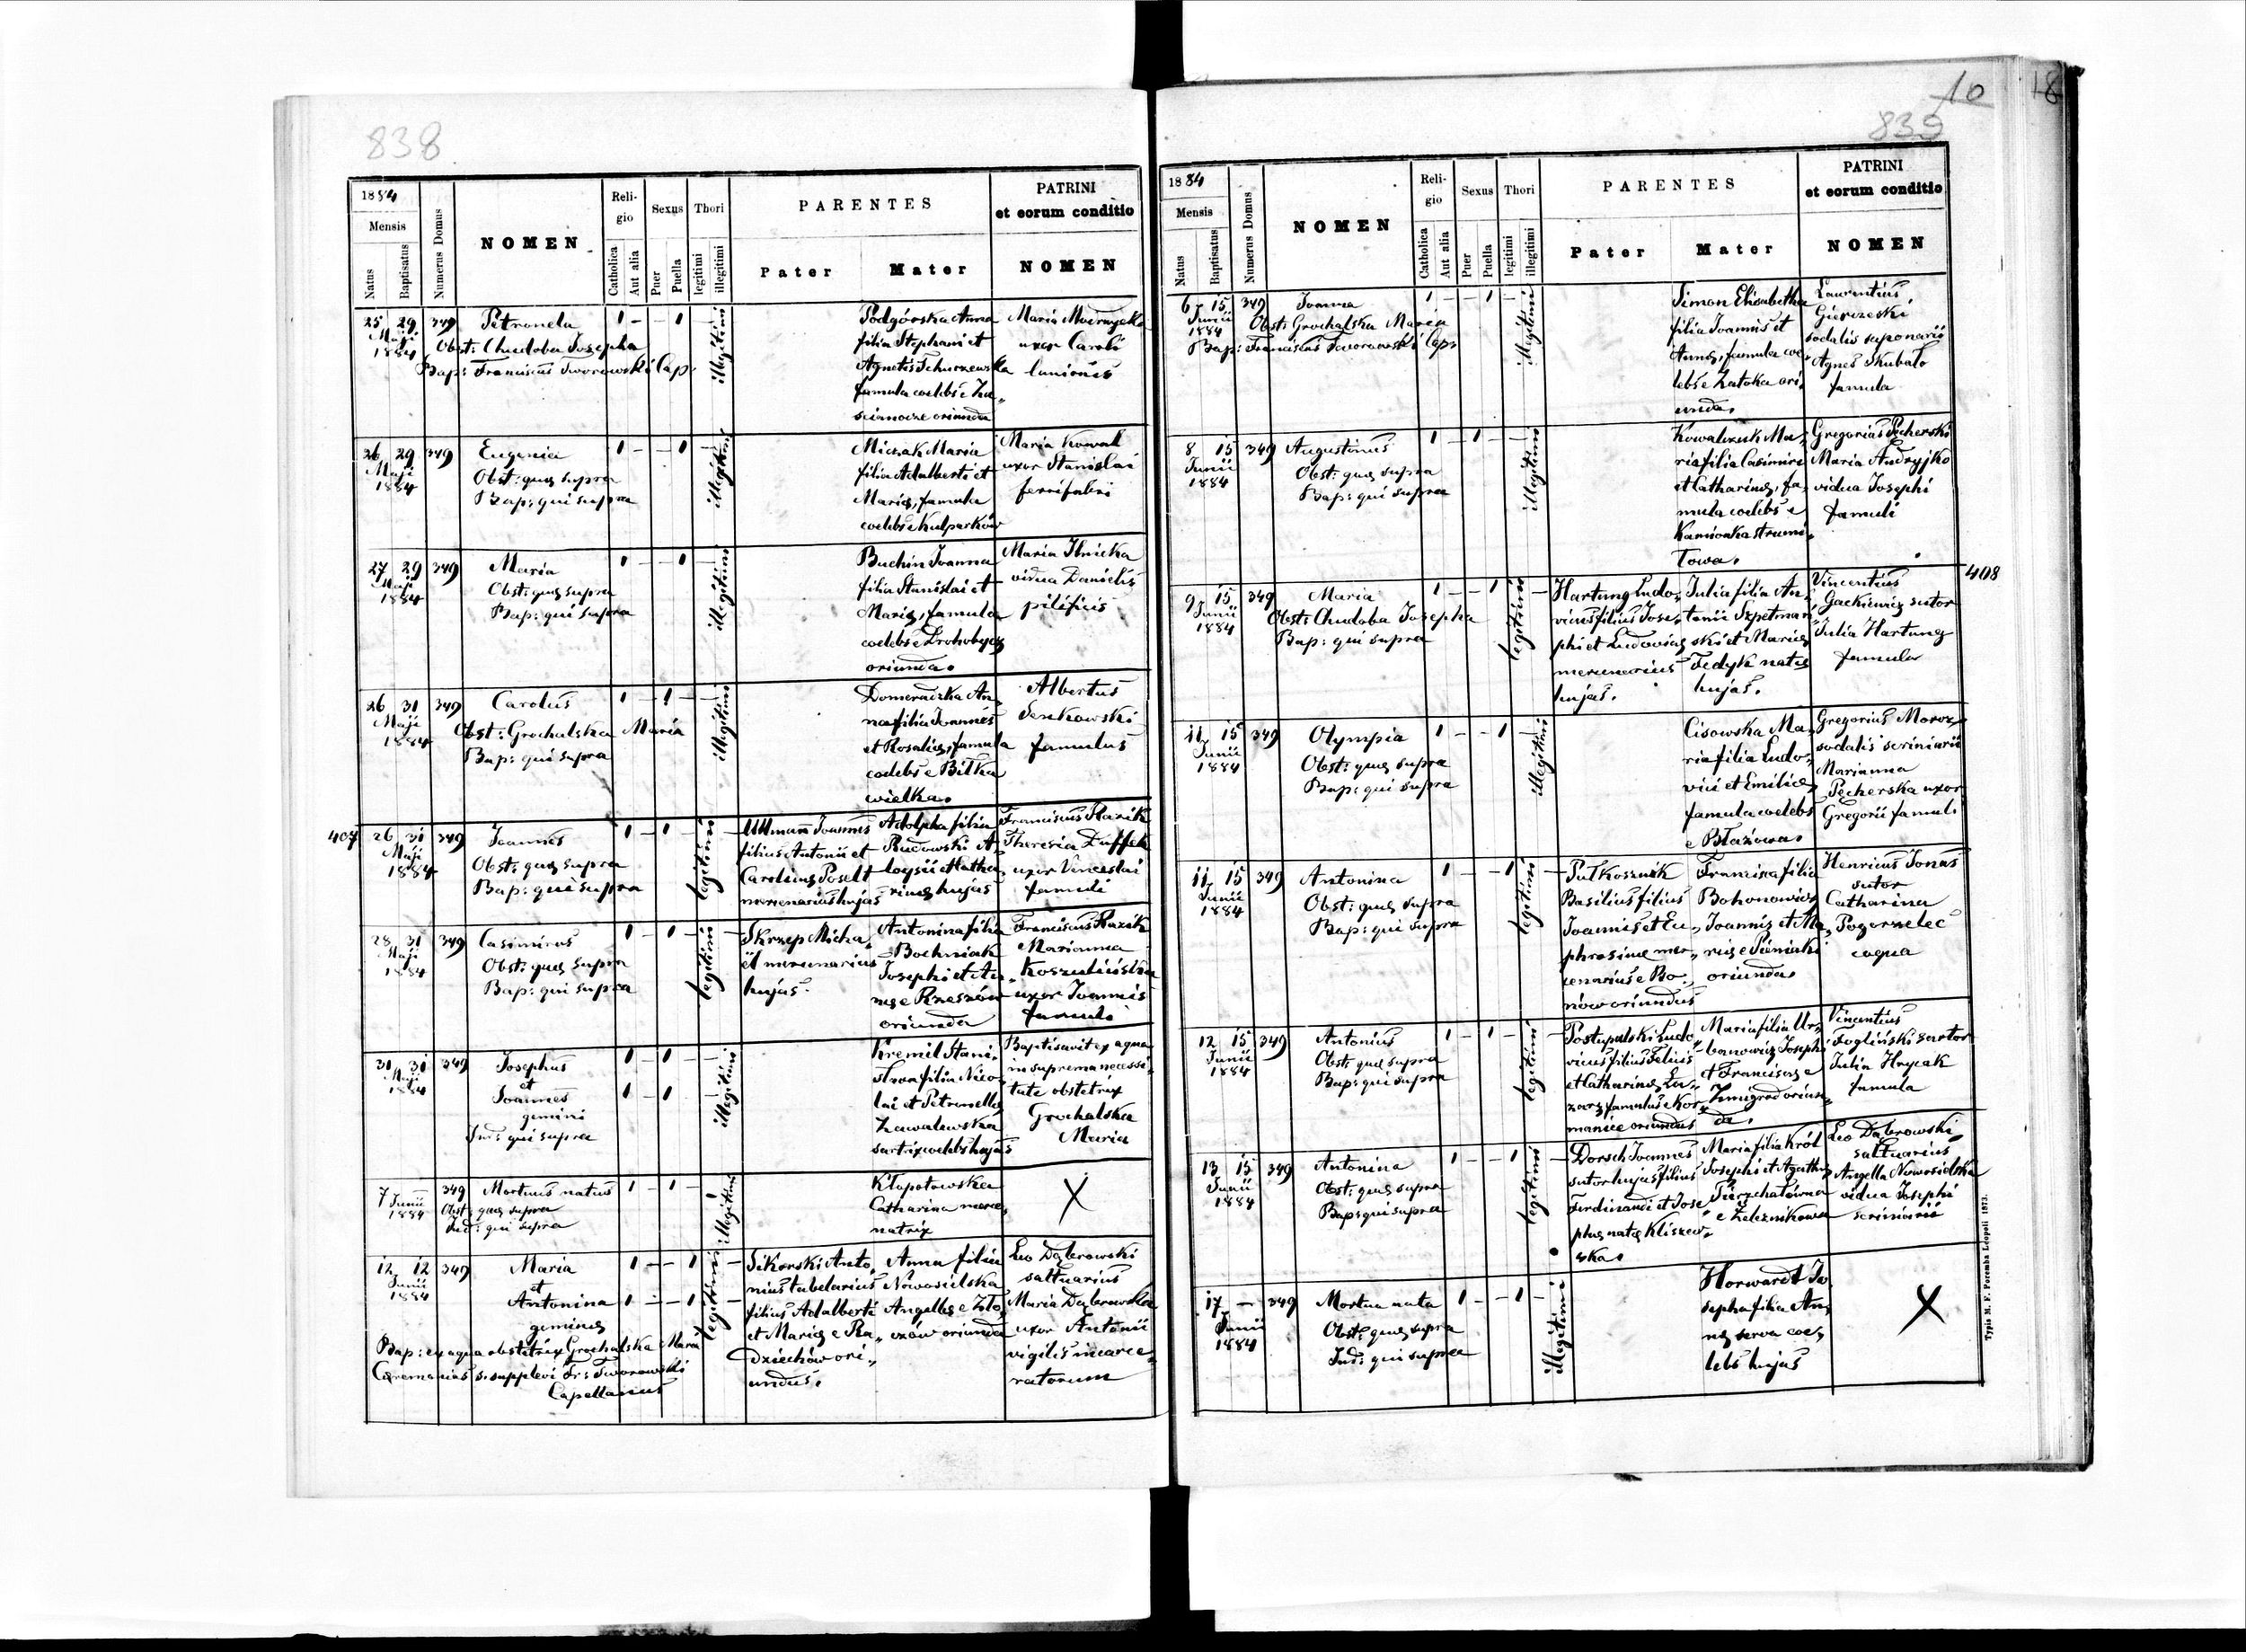 838
1884
Mensis
Natus
Baptisatus
Numerus Domus
NOMEN
Reli-
gio
Catholica
Aut alia
Sexus
Puer
Puella
Thori
legitimi
illegitimi
PARENTES
Pater
Mater
PATRINI
et eorum conditio
NOMEN
25 29 349
Maji
1884
Petronela
Obst: Chudoba Josepha
Bap: Franciscus Tworowski Cap.
1 – 1
illegitimi
Podgórska Anna
filia Stephani et
Agnetis
famula coelebs e
oriunda
Maria
uxor Caroli
lanionis
26 29 349
Maji
1884
Eugenia
Obst: quae supra
Bap: qui supra
1 – 1
illegitimi
Miczak Maria
filia Adalberti et
Mariae, famula
coelebs e Kulparków
Maria Kowal
uxor Stanislai
ferrifabri
27 29 349
Maji
1884
Maria
Obst: quae supra
Bap: qui supra
1 – 1
illegitimi
Buchin Joanna
filia Stanislai et
Mariae, famula
coelebs e Drohobycz
oriunda.
Maria Ilnicka
vidua Danielis
pilificis
26 31 349
Maji
1884
Carolus
Obst: Grochalska Maria
Bap: qui supra
1 – 1 –
illegitimi
Domeraczka An„
na filia Joannis
et Rosaliae, famula
coelebs e Biłka
wielka.
Albertus
Senkowski
famulus
407
26 31 349
Maji
1884
Joannes
Obst: quae supra
Bap: qui supra
1 – 1 –
legitimi
Ullmann Joannes
filius Antonii et
Carolinae Poselt
mercenarius hujas
Adolpha filia
Rudowski A
loysii et Catha„
rinae hujas
Franciscus Razik
Theresia Duffek
uxor Venceslai
famuli
28 31 349
Maji
1884
Casimirus
Obst: quae supra
Bap: qui supra
1 – 1 –
legitimi
Skrzep Micha„
el mercenarius
hujas.
Antonina filia
Bochniak
Josephi et An„
nae e Rzeszów
oriunda
Franciscus Razik
Marianna
uxor Joannis
famuli
31 31 349
Maji
1884
Josephus
et
Joannes
gemini
Ind: qui supra
1 – 1
1 – 1
illegitimi
Kremil Stani„
slava filia Nico„
lai et Petronellae
Zawalewska
sartrix coelebs hujas
Baptisavit ex aqua
in suprema necessi„
tate obstetrix
Grochalska
Maria
7 – 349
Junii
1884
Mortuus natus
Obst: quae supra
Ind: qui supra
1 – 1 –
illegitimi
Kłopotowska
Catharina merce„
natrix
X
12 12 349
Junii
1884
Maria
et
Antonina
geminae
Bap: ex aqua obstetrix Grochalska Maria
Ceremonias s. supplevi Fr: Tworowski
Capellanus
1 – – 1 –
1 – – 1 –
legitimi
Sikorski Anto„
nius tabelarius
filius Adalberti
et Mariae e Ra„
dziechów ori„
undus.
Anna filia
Nowosielska
Angellae e Zło„
czów oriunda
Leo Dąbrowski
saltuarius
Maria Dąbrowska
uxor Antonii
vigilis incarce„
ratorum
10
18
839
1884
Mensis
Natus
Baptisatus
Numerus Domus
NOMEN
Reli-
gio
Catholica
Aut alia
Sexus
Puer
Puella
Thori
legitimi
illegitimi
PARENTES
Pater
Mater
PATRINI
et eorum conditio
NOMEN
6 15 349
Junii
1884
Joanna
Obst: Grochalska Maria
Bap: Franciscus Tworowski Cap:
1 – – 1 –
illegitimi
Simon Elisabetha
filia Joannis et
Annae, famula coe„
lebs e Zatoka ori„
unda.
Laurentius
Gierczeski
sodalis saponarii
Agnes Skubało
famula
8 15 349
Junii
1884
Augustinus
Obst: quae supra
Bap: qui supra
1 – 1 –
illegitimi
Kowalczuk Ma„
ria filia Casimiri
et Catharinae, fa„
mula coelebs e
Kamionka strumi„
łowa.
Gregorius Pecherski
Maria Andryjko
vidua Josephi
famuli
408
9 15 349
Junii
1884
Maria
Obst: Chudoba Josepha
Bap: qui supra
1 – – 1 –
legitimi
Hartung Ludo„
vicus filius Jose„
phi et Ludovicae
mercenarius
hujas.
Julia filia An„
tonii Szpetmań„
ski et Mariae
Fedyk natae
hujas.
Vincentius
Gackiewicz sutor
Julia Hartung
famula
11 15 349
Junii
1884
Olympia
Obst: quae supra
Bap: qui supra
1 – – 1 –
illegitimi
Cisowska Ma„
ria filia Ludo„
vici et Emiliae
famula coelebs
e Błazowa.
Gregorius Moroz
sodalis scriniarii
Marianna
Pecherska uxor
Gregorii famuli
11 15 349
Junii
1884
Antonina
Obst: quae supra
Bap: qui supra
1 – – 1 –
legitimi
Putkosznik
Basilius filius
Joannis et Eu„
phrosinae mer„
cenarius e Bo„
nów oriundus
Francisca filia
Bohonowicz
Joannis et Ma„
riae e Pieniaki
oriunda.
Henricus Jonas
sutor
Catharina
Pogorzelec
coqua
12 15 349
Junii
1884
Antonius
Obst: quae supra
Bap: qui supra
1 – 1 –
legitimi
Postupalski Ludo„
vicus filius Felicis
et Catharinae La„
zarz famulus e Kor„
manice oriundus
Maria filia Ur„
banowicz Josephi
et Franciscae e
Zmigrod oriun„
da.
Vincentius
Fogliński sartor
Julia Hrycak
famula
13 15 349
Junii
1884
Antonina
Obst: quae supra
Bap: qui supra
1 – – 1 –
legitimi
Dorsch Joannes
sutor hujas filius
Ferdinandi et Jose„
phae natae Kliszew„
ska.
Maria filia Król
Josephi et Agathae
Pierzchałowna
e Zeleznikowa
Leo Dąbrowski
saltuarius
Angella Nowosielska
vidua Josephi
scriniarii
17 – 349
Junii
1884
Mortua nata
Obst: quae supra
Ind: qui supra
1 – – 1 –
illegitimi
Horwardt Jo„
sepha filia An„
nae serva coe„
lebs hujas
X
Typis M. F. Poremba Leopoli 1873.